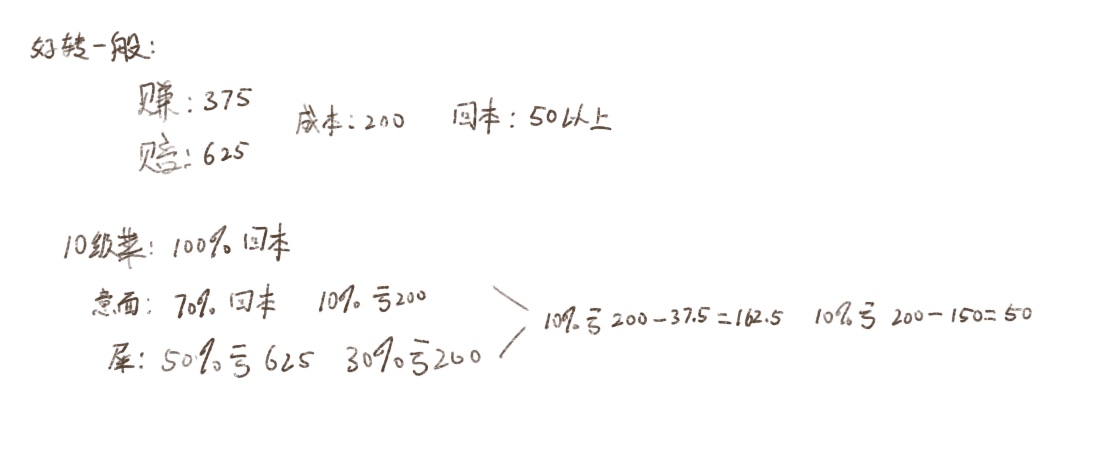 好转一般:
赚:375
成本:200 回本:50以上
赔:625
10级菜:100%回本
意面:70%回本 10%亏200
10%亏200-37.5=162.5 10%亏 200-150=50
屎:50%亏625 30%亏200